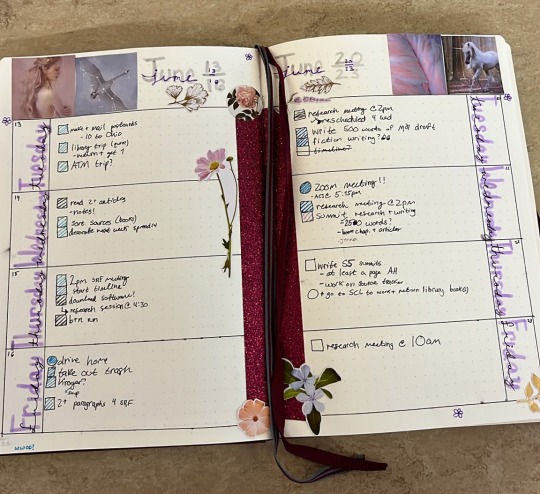 June 13
18
13
Tuesday
make + mail postcards
- 10 to Ohio
library trip
- return + get 1
ATM trip?
14
Wednesday
read 2+ articles
- notes!
sort sources (books)
decorate next week spread
15
Thursday
2pm SRF meeting
start timeline
download software!
research session @ 4:30
btn run
16
Friday
drive home
take out trash
Kroger?
- soup
2+ paragraphs 4 SRF
woo!
June 20
23
Tuesday
research meeting @ 2pm
rescheduled 4 wed
write 500 words of draft
fiction writing?
timeline?
Wednesday
zoom meeting!!
research meeting @ 2pm
summit research + writing
- 2500 words!
Thursday
write SS emails
- at least a page
- work on source tracker
go to SCL to work + return library books
Friday
research meeting @ 10am